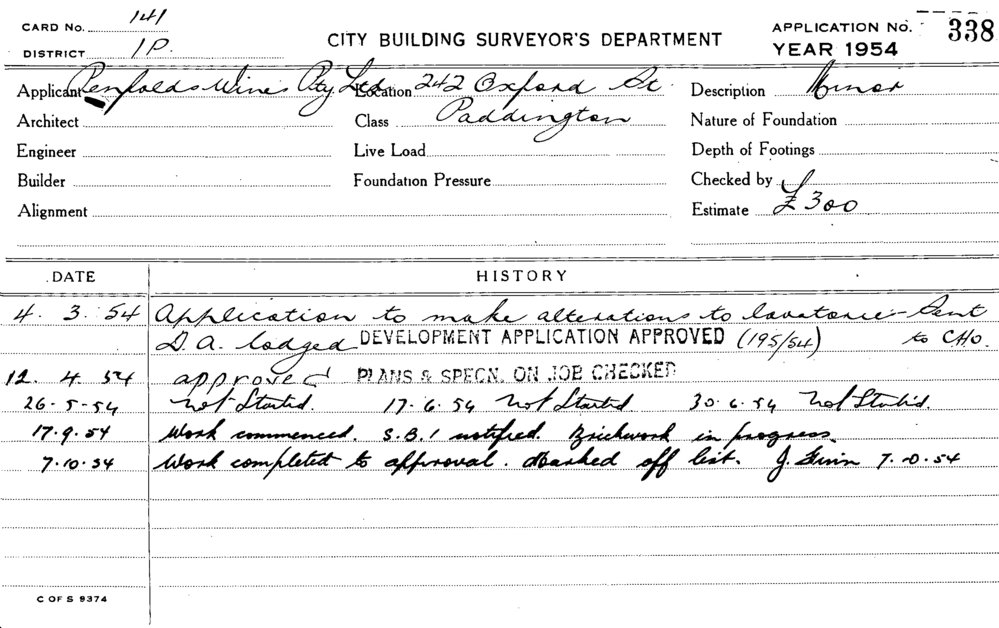 CARD No. 141
DISTRICT 1P.
CITY BUILDING SURVEYOR'S DEPARTMENT
APPLICATION No. 338
YEAR 1954
Applicant Penfolds Wines Pty Ltd Location 242 Oxford St Description Minor
Architect Class Paddington Nature of Foundation
Engineer Live Load Depth of Footings
Builder Foundation Pressure Checked by
Alignment Estimate £300
DATE HISTORY
4. 3. 54 Application to make alterations to lavatorie - Sent
D.A. lodged DEVELOPMENT APPLICATION APPROVED (195/54) to CHO.
12. 4. 54 approved PLANS & SPECN. ON JOB CHECKED
26-5-54 Not Started. 17-6-54 Not Started 30-6-54 Not Started.
17.9.54 Work commenced. S.B.I notified. Brickwork in progress.
7.10.54 Work completed to approval. Marked off list. J. 7.10.54
C OF S 9374